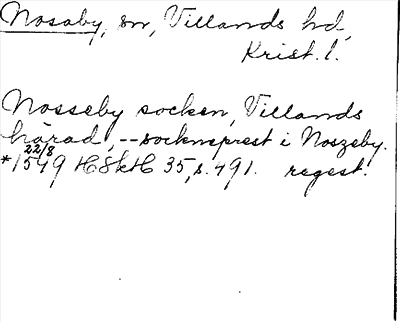 Nosaby, sn, Villands hd,
Krist. l.
Nosseby socken, Villands
härad, -- socknsprest i Noszeby.
22/8
*1549 HSkH 35, s. 491. regest.